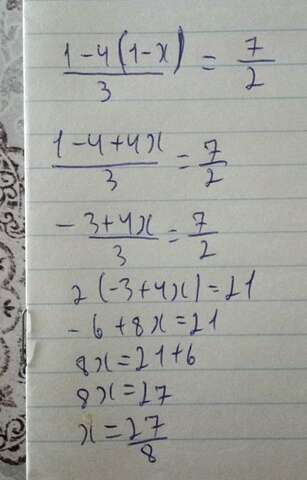 1-4(1-x)/3 = 7/2
1-4+4x/3 = 7/2
-3+4x/3 = 7/2
2(-3+4x)=21
-6+8x=21
8x=21+6
8x=27
x=27/8